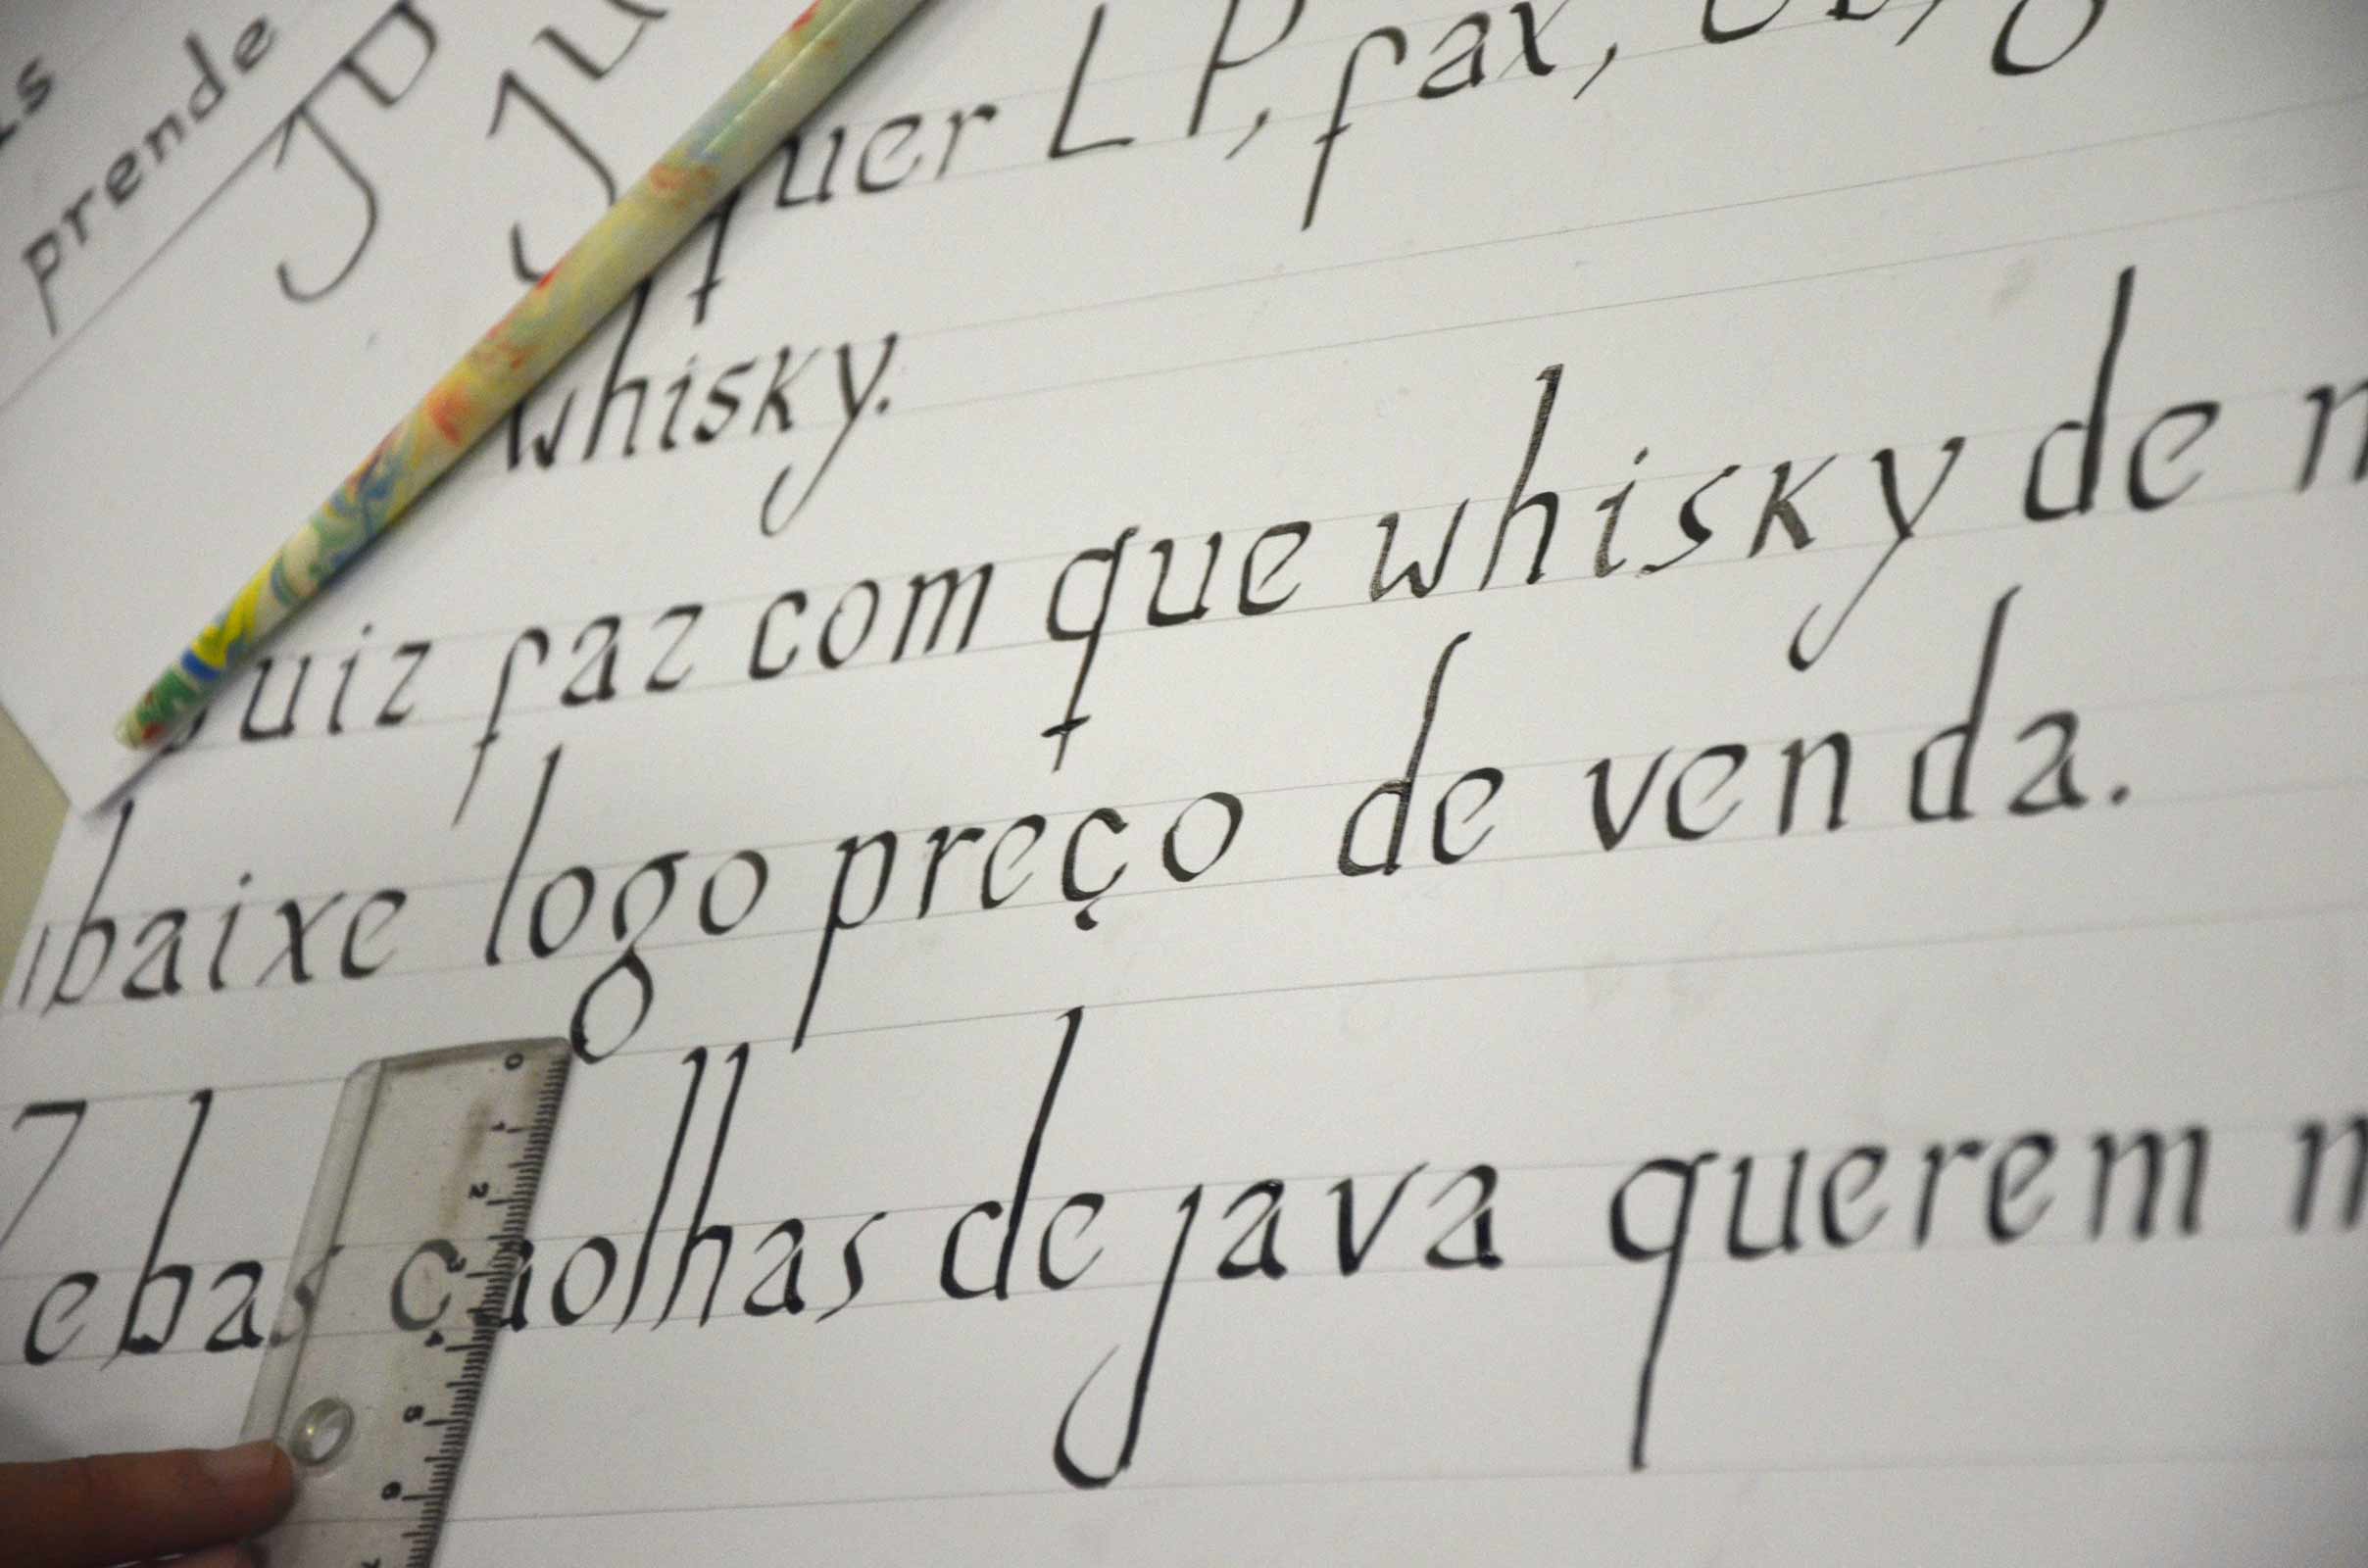 prende
quer LP, fax,
whisky.
juiz faz com que whisky de
baixe logo preço de venda.
Zebas çaolhas de java querem